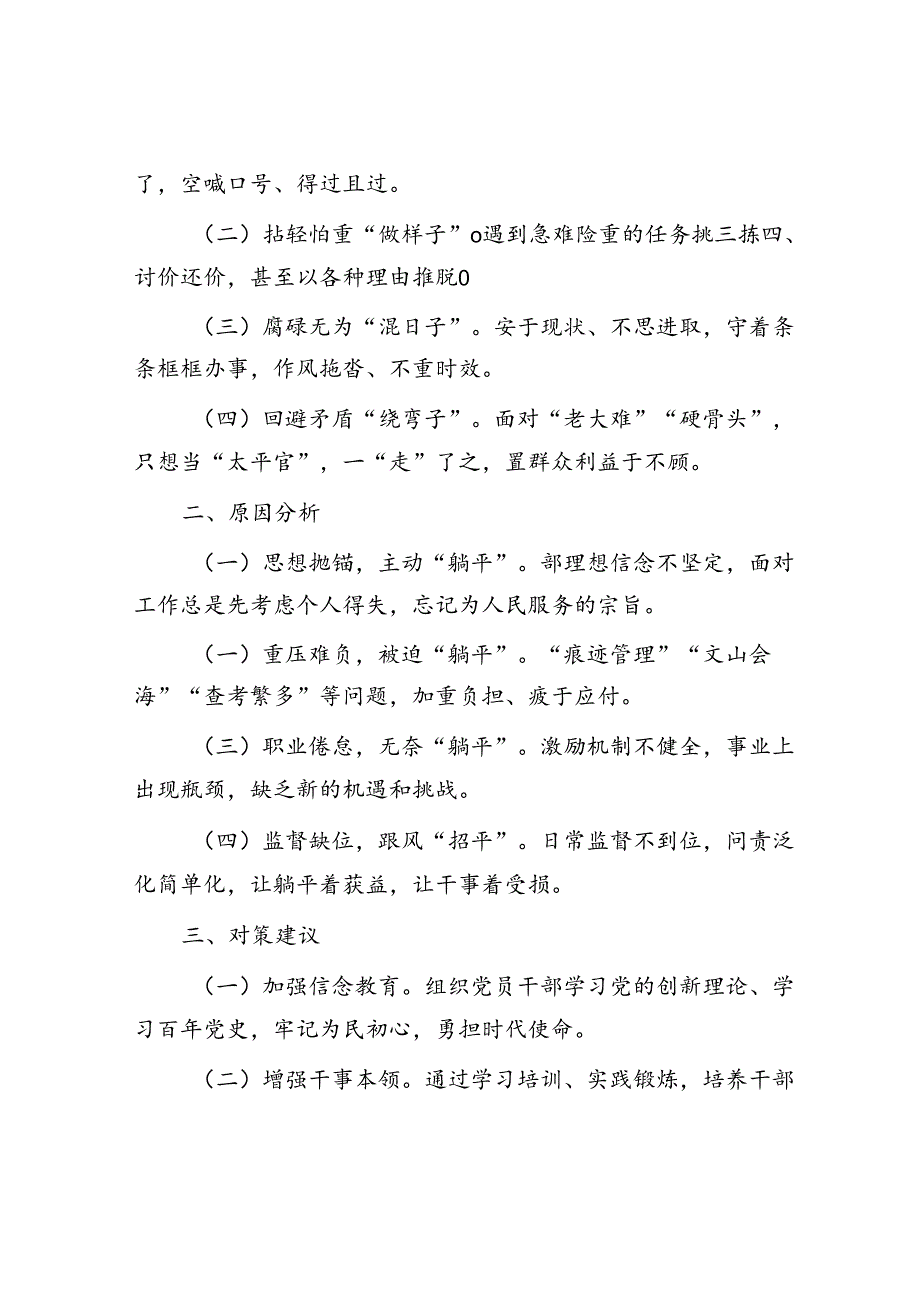 了，空喊口号、得过且过。
（二）拈轻怕重“做样子”o遇到急难险重的任务挑三拣四、
讨价还价，甚至以各种理由推脱0
（三）腐碌无为“混日子”。安于现状、不思进取，守着条
条框框办事，作风拖沓、不重时效。
（四）回避矛盾“绕弯子”。面对“老大难”“硬骨头”，
只想当“太平官”，一“走”了之，置群众利益于不顾。
二、原因分析
（一）思想抛锚，主动“躺平”。部理想信念不坚定，面对
工作总是先考虑个人得失，忘记为人民服务的宗旨。
（一）重压难负，被迫“躺平”。“痕迹管理”“文山会
海”“查考繁多”等问题，加重负担、疲于应付。
（三）职业倦怠，无奈“躺平”。激励机制不健全，事业上
出现瓶颈，缺乏新的机遇和挑战。
（四）监督缺位，跟风“招平”。日常监督不到位，问责泛
化简单化，让躺平着获益，让干事着受损。
三、对策建议
（一）加强信念教育。组织党员干部学习党的创新理论、学
习百年党史，牢记为民初心，勇担时代使命。
（二）增强干事本领。通过学习培训、实践锻炼，培养干部